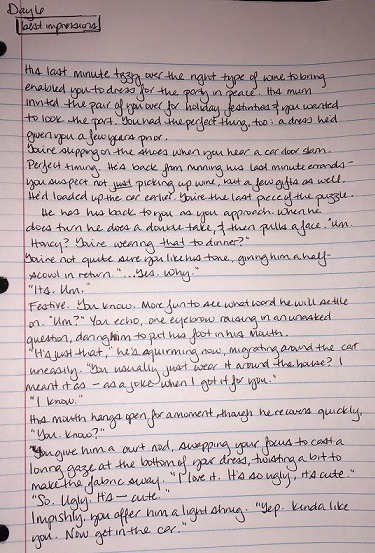 Day 6
best impressions
His last minute tizzy over the right type of wine to bring
enabled you to dress for the party in peace. His mum
invited the pair of you over for holiday festivities & you wanted
to look the part. You had the perfect thing, too: a dress he'd
given you a few years prior.
You're slipping on the shoes when you hear a car door slam.
Perfect timing. He's back from running his last minute errands -
you suspect not just picking up wine, but a few gifts as well.
He'd loaded up the car earlier. You're the last piece of the puzzle.
He has his back to you as you approach. When he
does turn he does a double take, & then pulls a face. "Um.
Honey? You're wearing that to dinner?"
You're not quite sure you like his tone, giving him a half-
scowl in return. "...Yes. Why."
"It's. Um."
Festive. You know. More fun to see what word he will settle
on. "Um?" You echo, one eyebrow raising in an unasked
question, daring him to put his foot in his mouth.
"It's just that," he's squirming now, migrating around the car
uneasily. "You usually just wear it around the house? I
meant it as - as a joke when I got it for you."
"I know."
His mouth hangs open for a moment, though he recovers quickly,
"You. Know?"
You give him a curt nod, swapping your focus to cast a
loving gaze at the bottom of your dress, twisting a bit to
make the fabric sway. "I love it. It's so ugly, it's cute."
"So. Ugly. It's - cute."
Impishly, you offer him a light shrug. "Yep. Kinda like
you. Now get in the car."